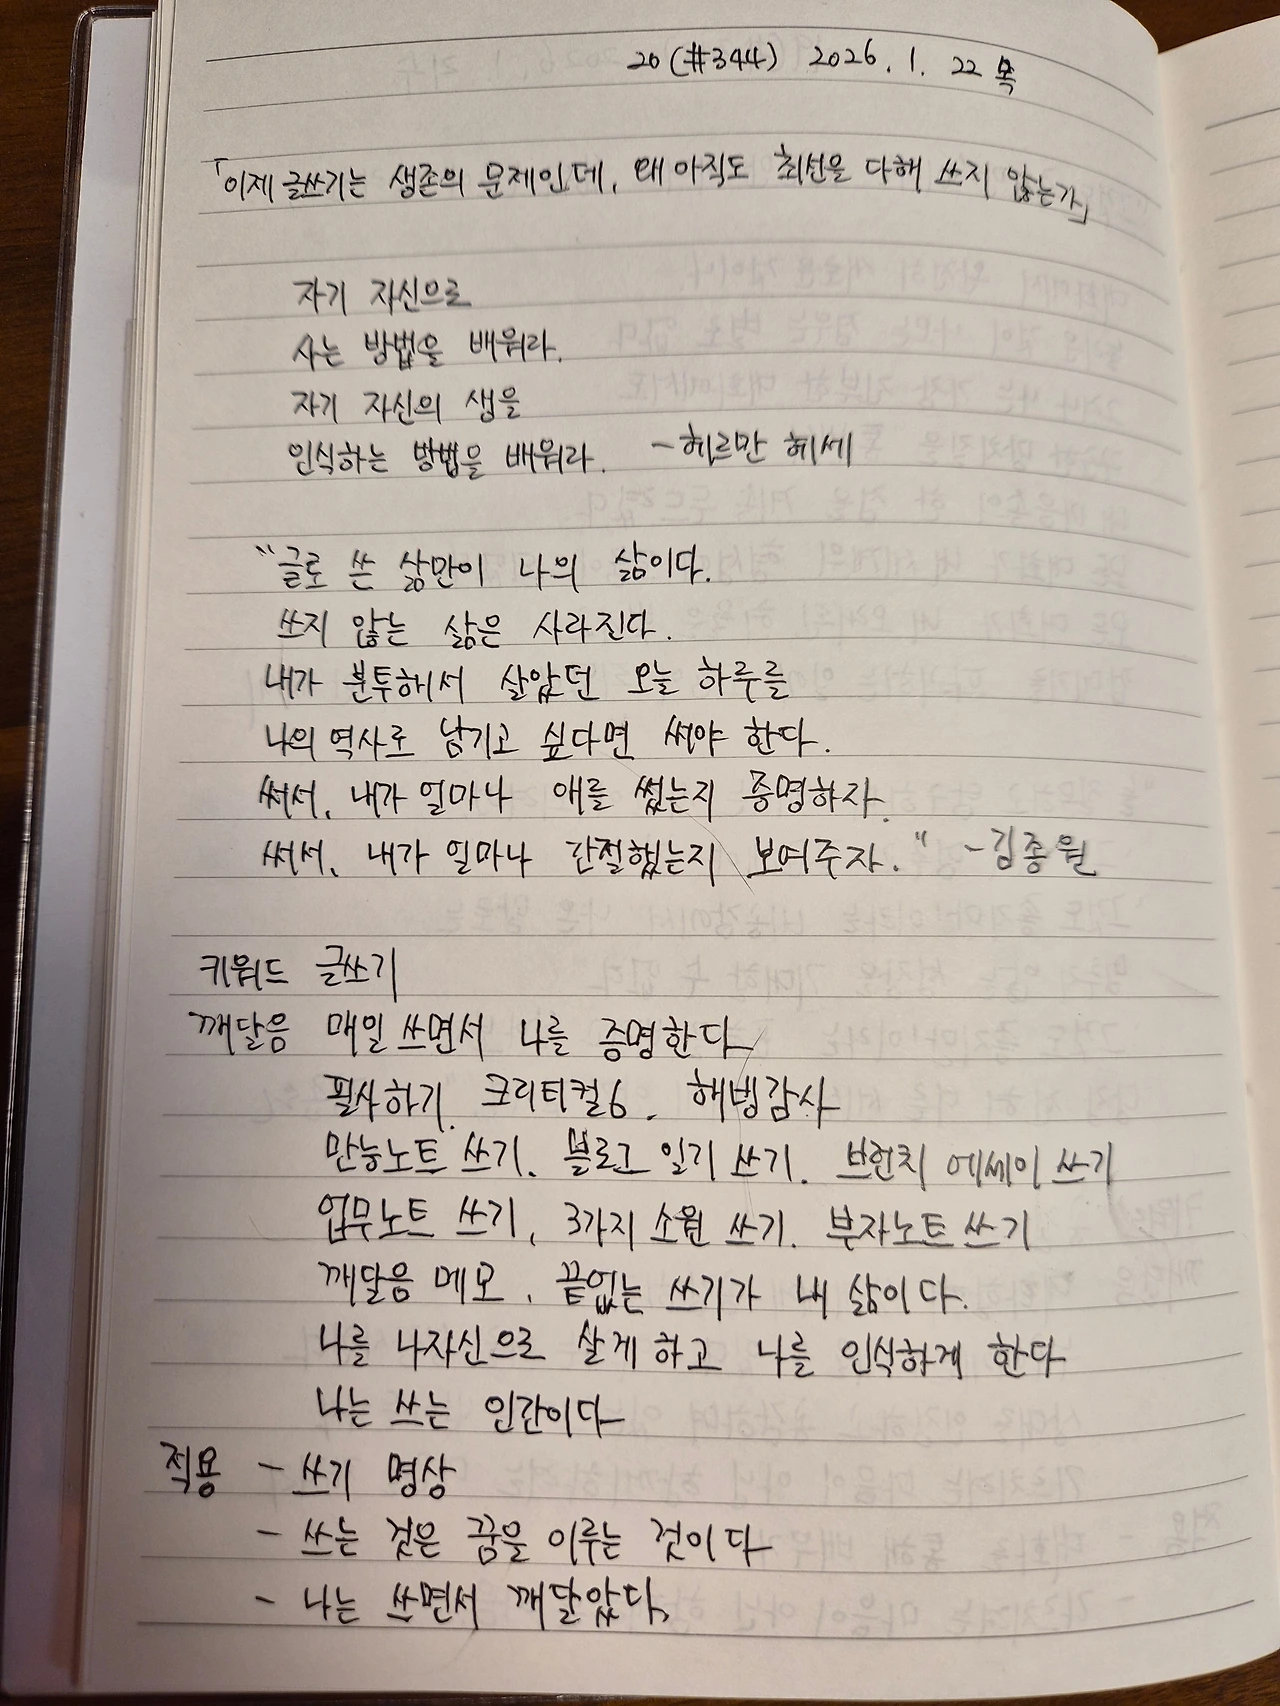 20(#344) 2026. 1. 22 목
「이제 글쓰기는 생존의 문제인데, 왜 아직도 최선을 다해 쓰지 않는가」
자기 자신으로
사는 방법을 배워라.
자기 자신의 생을
인식하는 방법을 배워라. -헤르만 헤세
"글로 쓴 삶만이 나의 삶이다.
쓰지 않는 삶은 사라진다.
내가 분투해서 살았던 오늘 하루를
나의 역사로 남기고 싶다면 써야 한다.
써서, 내가 얼마나 애를 썼는지 증명하자.
써서, 내가 얼마나 간절했는지 보여주자." -김종원
키워드 글쓰기
깨달음 매일 쓰면서 나를 증명한다
필사하기, 크리티컬6, 해빙감사
만능노트 쓰기, 블로그 일기 쓰기, 브런치 에세이 쓰기
업무노트 쓰기, 3가지 소원 쓰기, 부자노트 쓰기
깨달음 메모, 끝없는 쓰기가 내 삶이다.
나를 나자신으로 살게 하고 나를 인식하게 한다
나는 쓰는 인간이다
적용 - 쓰기 명상
- 쓰는 것은 꿈을 이루는 것이다
- 나는 쓰면서 깨달았다.